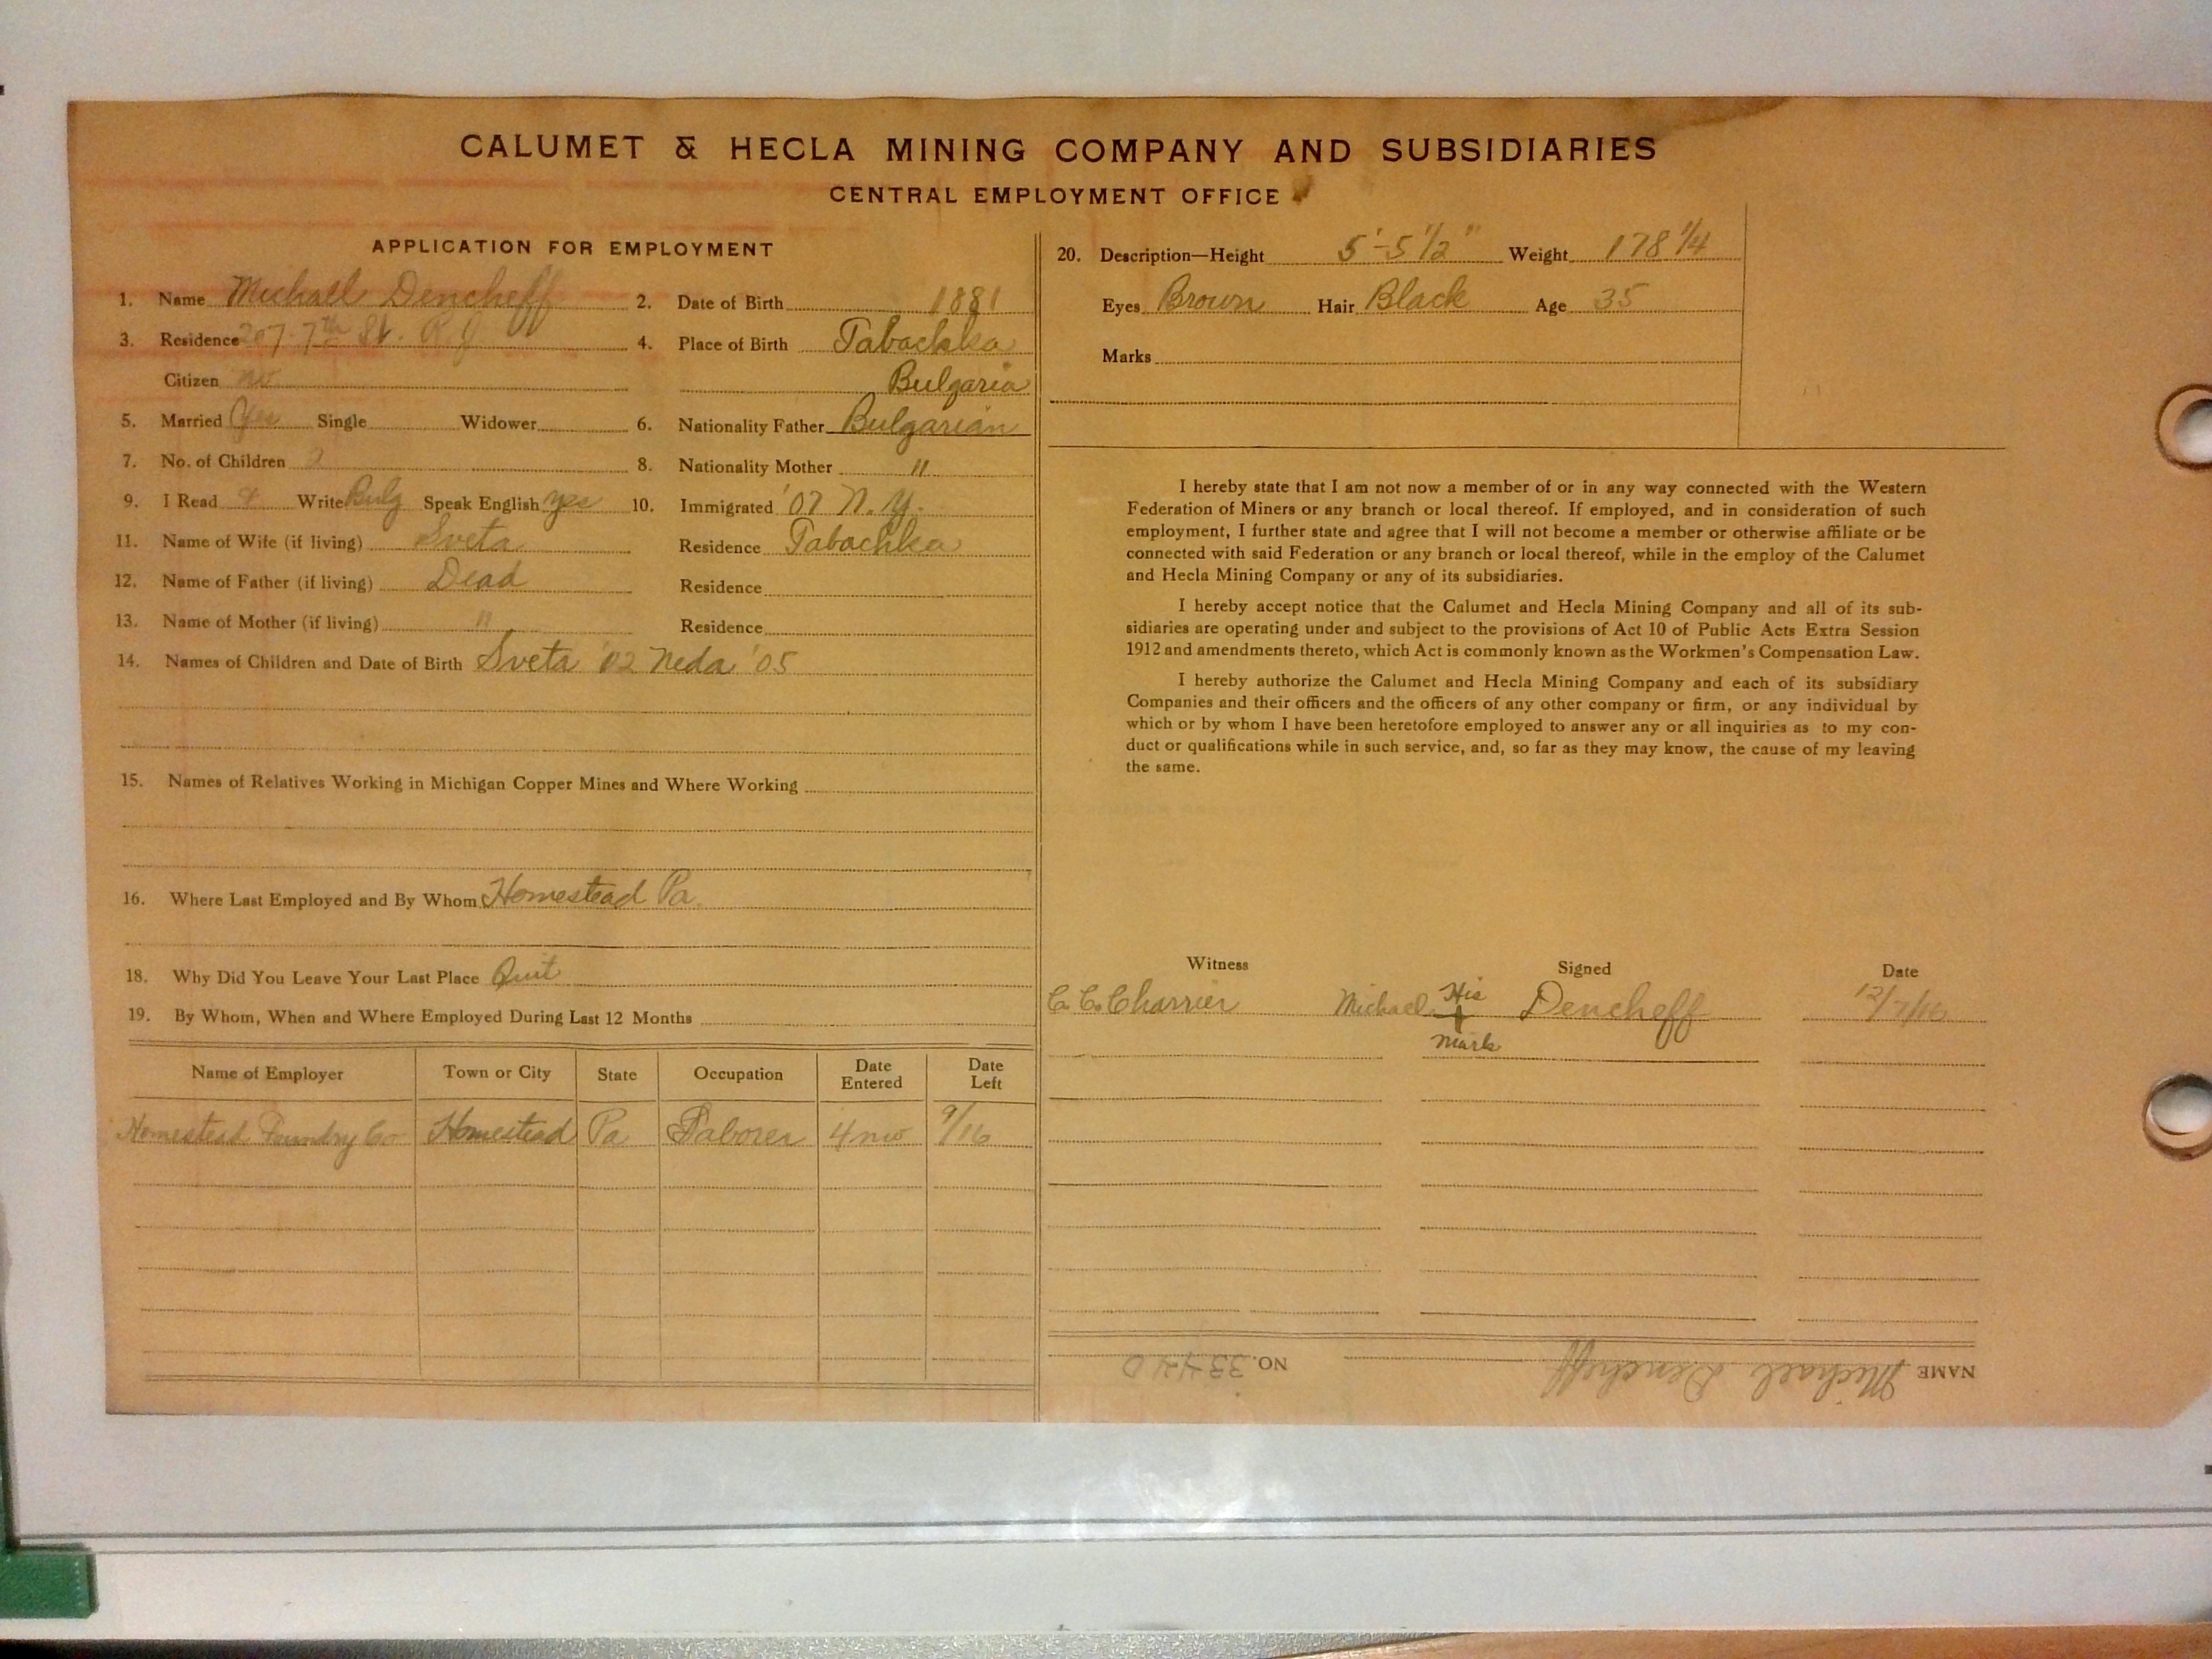 CALUMET & HECLA MINING COMPANY AND SUBSIDIARIES
CENTRAL EMPLOYMENT OFFICE
APPLICATION FOR EMPLOYMENT
1. Name Michael Dencheff 2. Date of Birth 1881
3. Residence 207-7th St. R J 4. Place of Birth Tabachka
Citizen no Bulgaria
5. Married Yes Single Widower 6. Nationality Father Bulgarian
7. No. of Children 2 8. Nationality Mother "
9. I Read & Write Bulg Speak English yes 10. Immigrated '07 N.Y.
11. Name of Wife (if living) Sveta Residence Tabachka
12. Name of Father (if living) Dead Residence
13. Name of Mother (if living) " Residence
14. Names of Children and Date of Birth Sveta '02 Neda '05
15. Names of Relatives Working in Michigan Copper Mines and Where Working
16. Where Last Employed and By Whom Homestead Pa.
18. Why Did You Leave Your Last Place Quit
19. By Whom, When and Where Employed During Last 12 Months
Name of Employer Town or City State Occupation Date Entered Date Left
Homestead Foundry Co Homestead Pa Laborer 4 mo 9/16
20. Description—Height 5'-5 1/2" Weight 178 1/4
Eyes Brown Hair Black Age 35
Marks
I hereby state that I am not now a member of or in any way connected with the Western
Federation of Miners or any branch or local thereof. If employed, and in consideration of such
employment, I further state and agree that I will not become a member or otherwise affiliate or be
connected with said Federation or any branch or local thereof, while in the employ of the Calumet
and Hecla Mining Company or any of its subsidiaries.
I hereby accept notice that the Calumet and Hecla Mining Company and all of its sub-
sidiaries are operating under and subject to the provisions of Act 10 of Public Acts Extra Session
1912 and amendments thereto, which Act is commonly known as the Workmen's Compensation Law.
I hereby authorize the Calumet and Hecla Mining Company and each of its subsidiary
Companies and their officers and the officers of any other company or firm, or any individual by
which or by whom I have been heretofore employed to answer any or all inquiries as to my con-
duct or qualifications while in such service, and, so far as they may know, the cause of my leaving
the same.
Witness Signed Date
C. C. Charrier Michael His + Mark Dencheff 12/7/16
NAME Michael Dencheff NO. 33440